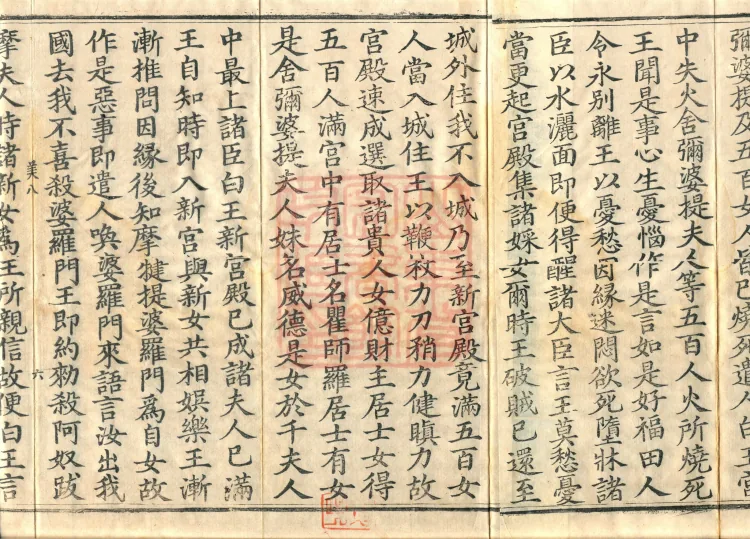 彌婆提及五百女人皆已燒死遣人白王宮
中失火舍彌婆提夫人等五百人火所燒死
王聞是事心生憂惱作是言如是好福田人
令永別離王以憂愁因緣迷悶欲死墮牀諸
臣以水灑面即便得醒諸大臣言王莫愁憂
當更起宮殿集諸婇女爾時王破賊已還至
城外住我不入城乃至新宮殿竟滿五百女
人當入城住王以鞭杖力刀矟力健瞋力故
宮殿速成選取諸貴人女億財主居士女得
五百人滿宮中有居士名瞿師羅居士有女
是舍彌婆提夫人妹名威德是女於千夫人
中最上諸臣白王新宮殿已成諸夫人已滿
王自知時即入新宮與新女共相娛樂王漸
漸推問因緣後知摩揵提婆羅門爲自女故
作是惡事即遣人喚婆羅門來語言汝出我
國去我不喜殺婆羅門王即約勑殺阿奴跋
八 六
摩夫人時諸新女爲王所親信故便白王言